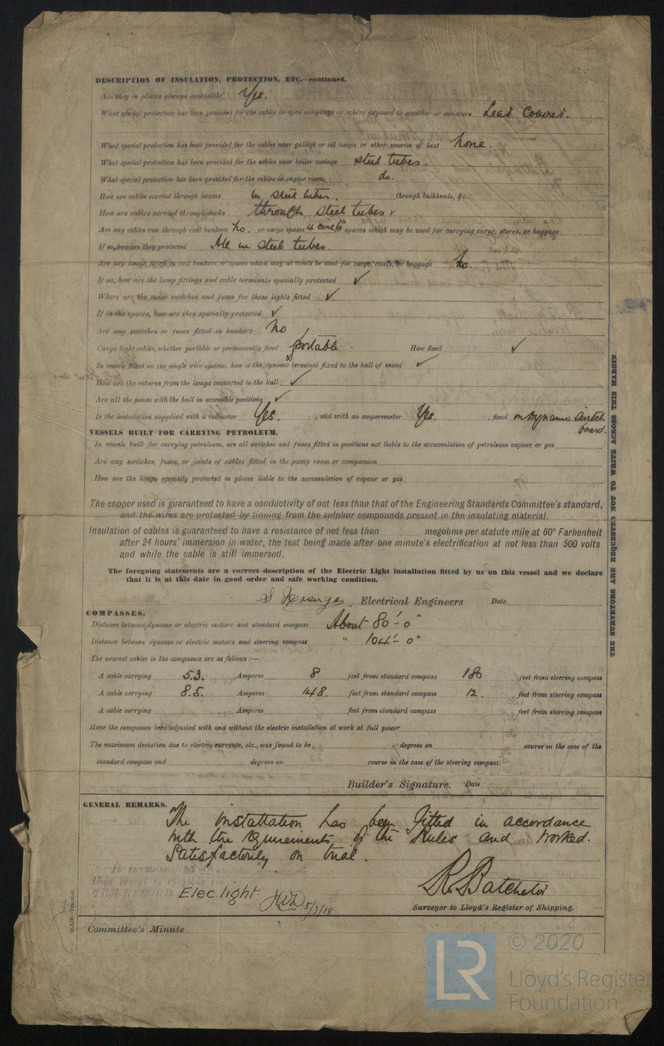 DESCRIPTION OF INSULATION, PROTECTION, ETC.—continued.
Are they in places always accessible Yes.
What special protection has been provided for the cables in open alleyways or where exposed to weather or moisture Lead Covered.
What special protection has been provided for the cables near galleys or oil lamps or other sources of heat None.
What special protection has been provided for the cables near boiler casings steel tubes.
What special protection has been provided for the cables in engine room. do.
How are cables carried through beams in steel tubes. through bulkheads, &c.
How are cables carried through decks through steel tubes
Are any cables run through coal bunkers No. or cargo spaces spaces which may be used for carrying cargo, stores, or baggage
If so, how are they protected All in steel tubes.
Are any lamps fitted in coal bunkers or spaces which may at times be used for cargo, coals, or baggage No.
If so, how are the lamp fittings and cable terminals specially protected ✓
Where are the main switches and fuses for these lights fitted ✓
If in the spaces, how are they specially protected ✓
Are any switches or fuses fitted in bunkers No
Cargo light cables, whether portable or permanently fixed portable. How fixed ✓
In vessels fitted on the single wire system, how is the dynamo terminal fixed to the hull of vessel ✓
How are the returns from the lamps connected to the hull ✓
Are all the joints with the hull in accessible positions ✓
Is the installation supplied with a voltmeter Yes. , and with an amperemeter Yes , fixed on Dynamo Switch
board.
VESSELS BUILT FOR CARRYING PETROLEUM.
In vessels built for carrying petroleum, are all switches and fuses fitted in positions not liable to the accumulation of petroleum vapour or gas
Are any switches, fuses, or joints of cables fitted in the pump room or companion
How are the lamps specially protected in places liable to the accumulation of vapour or gas
The copper used is guaranteed to have a conductivity of not less than that of the Engineering Standards Committee's standard,
and the wires are protected by tinning from the sulphur compounds present in the insulating material.
Insulation of cables is guaranteed to have a resistance of not less than megohms per statute mile at 60° Farhenheit
after 24 hours' immersion in water, the test being made after one minute's electrification at not less than 500 volts
and while the cable is still immersed.
The foregoing statements are a correct description of the Electric Light installation fitted by us on this vessel and we declare
that it is at this date in good order and safe working condition.
Electrical Engineers Date
COMPASSES.
Distance between dynamo or electric motors and standard compass About 80'-0"
Distance between dynamo or electric motors and steering compass " 104'-0"
The nearest cables to the compasses are as follows:—
A cable carrying 5.3. Amperes 8 feet from standard compass 180 feet from steering compass
A cable carrying 8.5. Amperes 148. feet from standard compass 12. feet from steering compass
A cable carrying Amperes feet from standard compass feet from steering compass
Have the compasses been adjusted with and without the electric installation at work at full power
The maximum deviation due to electric currents, etc., was found to be degrees on course in the case of the
standard compass and degrees on course in the case of the steering compass.
Builder's Signature. Date
GENERAL REMARKS.
The installation has been fitted in accordance
with the requirements of the Rules and worked.
Satisfactorily on trial.
Elec light 5/7/18
R. Batchelor
Surveyor to Lloyd's Register of Shipping.
Committee's Minute
THE SURVEYORS ARE REQUESTED NOT TO WRITE ACROSS THIS MARGIN.
LR
© 2020
Lloyd's Register
Foundation